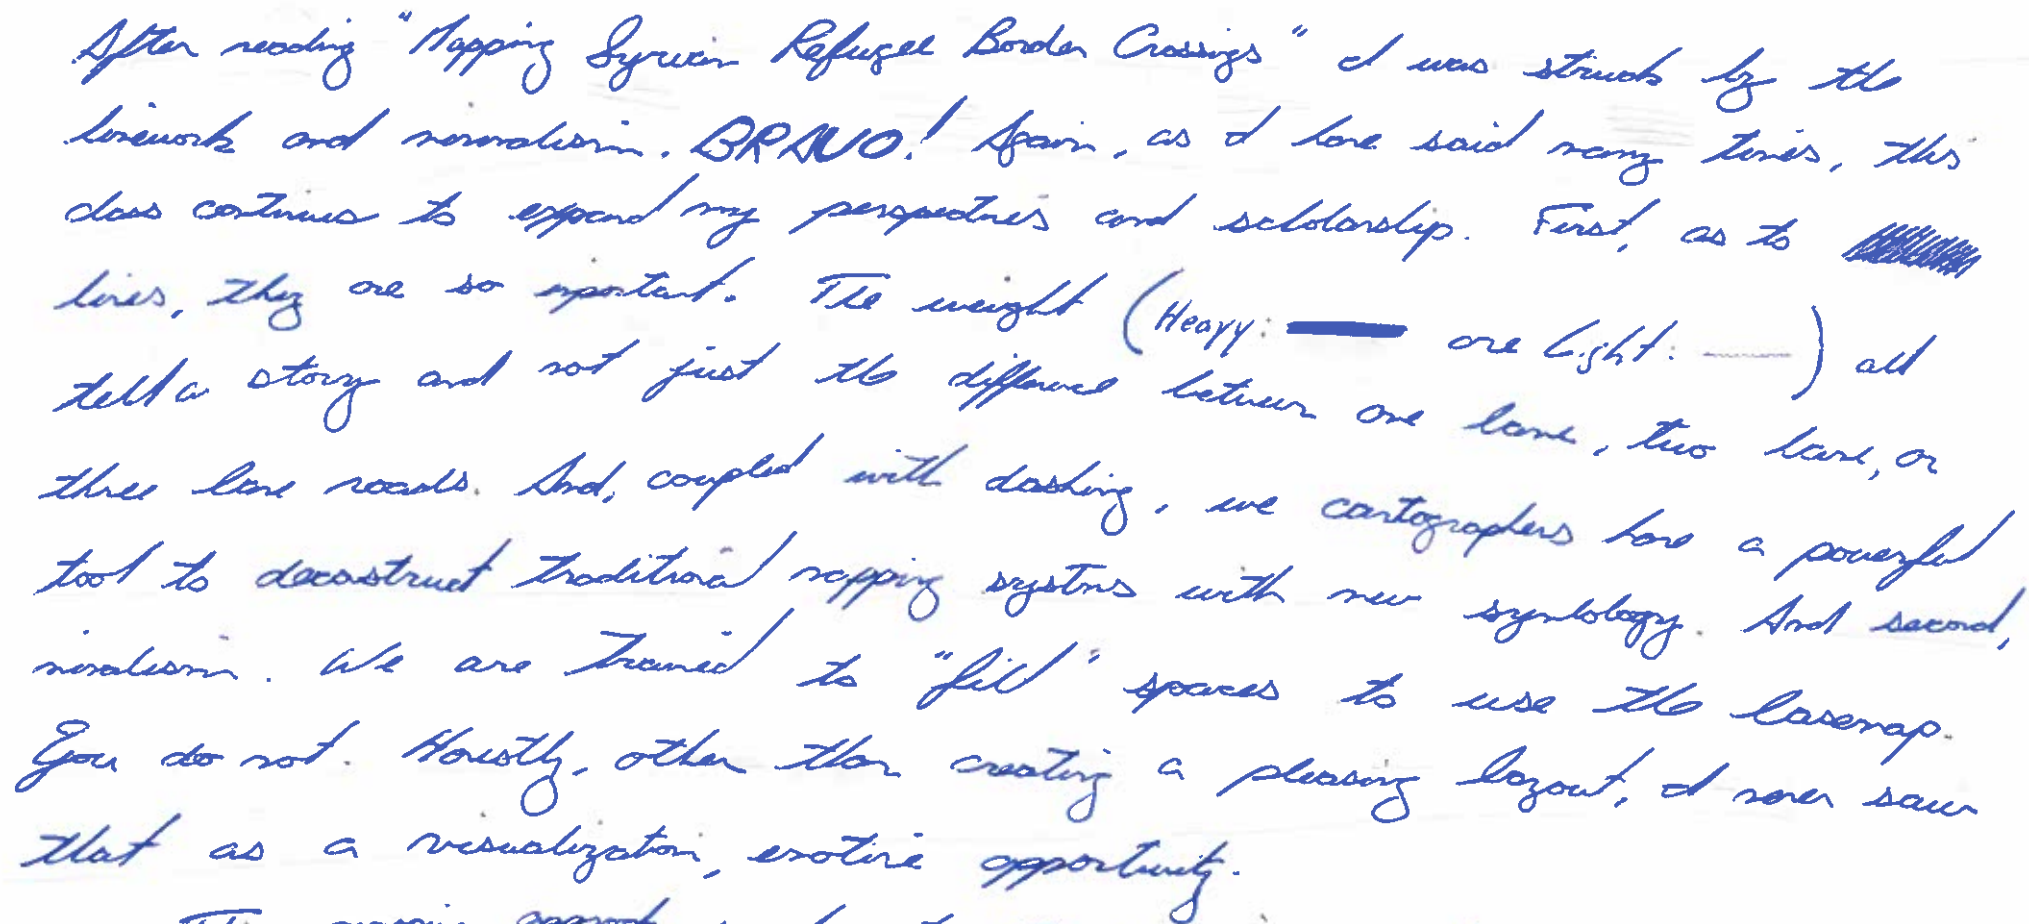 After reading "Mapping Syrian Refugee Border Crossings" I was struck by the
linework and minimalism. BRAVO! Again, as I have said many times, this
class continues to expand my perspectives and scholarship. First, as to
lines, they are so important. The weight (Heavy: are Light: ) all
tell a story and not just the difference between one lane, two lane, or
three lane roads. And, coupled with dashing, we cartographers have a powerful
tool to deconstruct traditional mapping systems with new symbology. And second,
minimalism. We are trained to "fill" spaces to use the basemap.
You do not. Honestly, other than creating a pleasing layout, I never saw
that as a visualization, emotive opportunity.
The